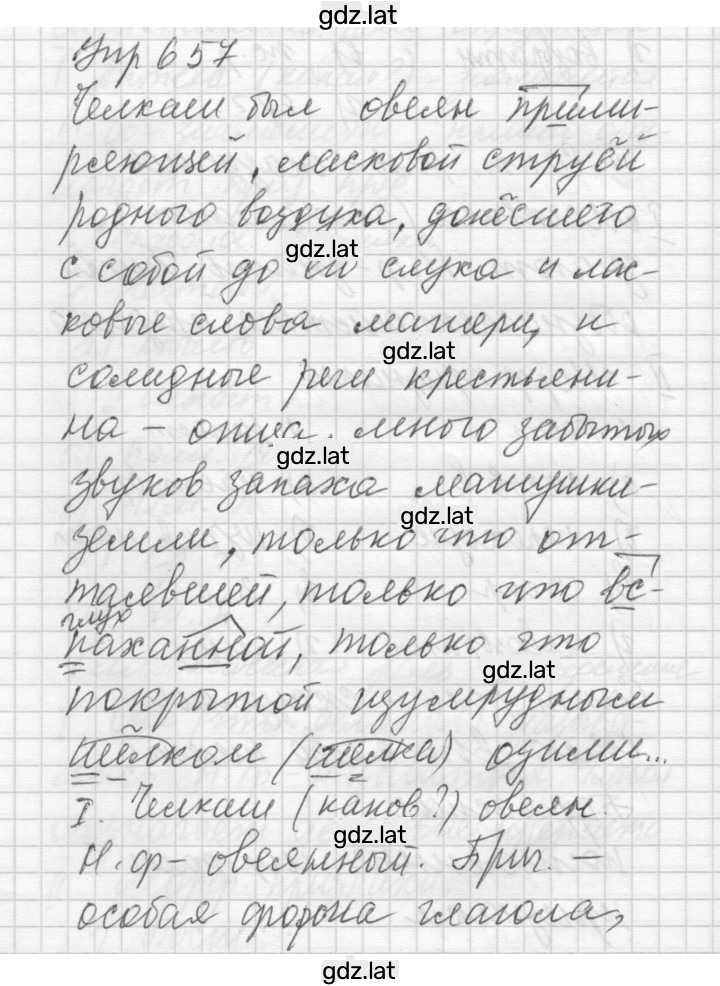 gdz.lat
Упр 657
Челкаш был овеян прими-
ряющей, ласковой струёй
родного воздуха, донёсшего
gdz.lat
с собой до его слуха и лас-
ковые слова матери, и
gdz.lat
солидные речи крестьяни-
на – отца, много забытых
gdz.lat
звуков запаха матушки-
gdz.lat
земли, только что от-
таявшей, только что вс-
глух
паханной, только что
gdz.lat
покрытой изумрудным
шёлком (шелка) озими...
I. Челкаш (каков?) овеян.
gdz.lat
Н.ф – овеянный. Прич. –
особая форма глагола,
gdz.lat